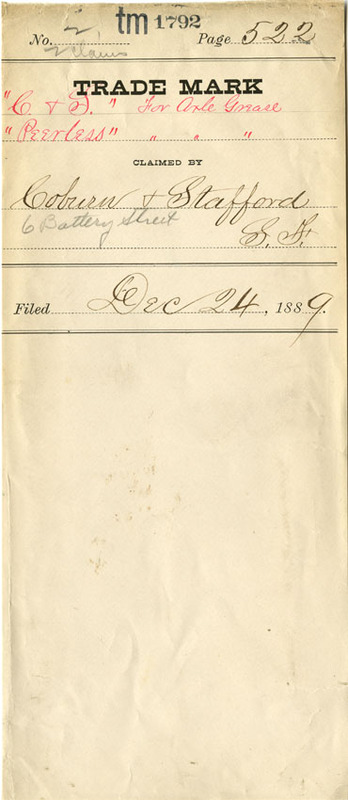 tm 1792
No. 2 Page 522
2 Claims
TRADE MARK
"C & S." For Axle Grease
"Peerless" " " "
CLAIMED BY
Coburn & Stafford
6 Battery Street
S. F.
Filed Dec 24, 1889.